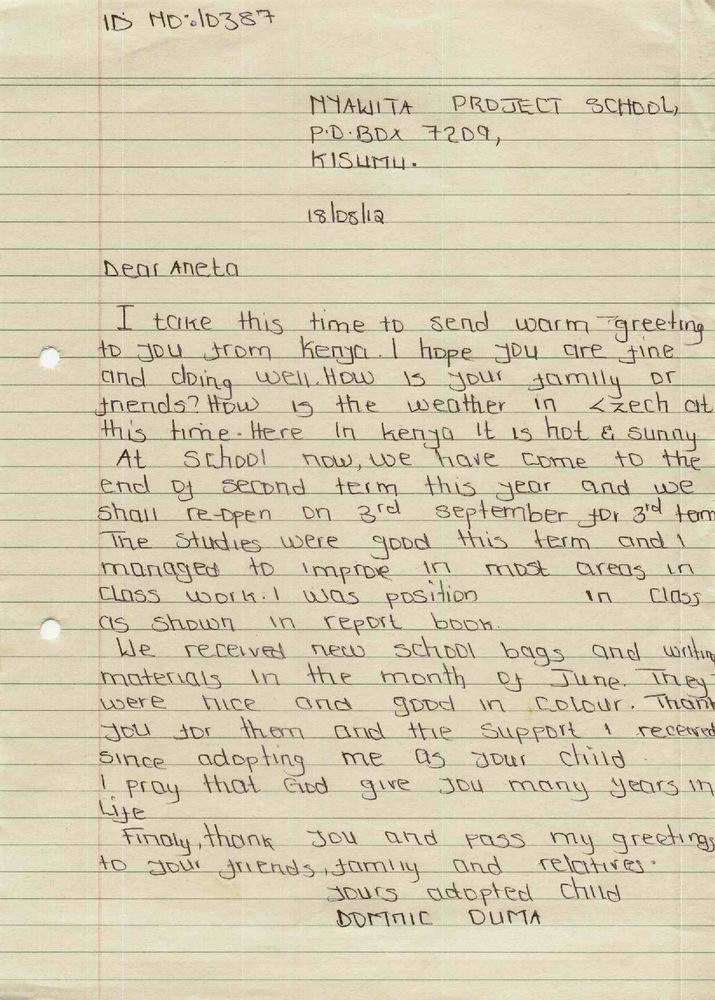 ID NO:10387
NYAWITA PROJECT SCHOOL,
P.O.BOX 7209,
KISUMU.
18/08/12
Dear Aneta
I take this time to send warm greeting
to you from Kenya. I hope you are fine
and doing well. How is your family or
friends? How is the weather in Czech at
this time. Here in kenya it is hot & sunny
At school now, we have come to the
end of second term this year and we
shall re-open on 3rd september for 3rd term
The studies were good this term and I
managed to improve in most areas in
class work. I was position in class
as shown in report book.
We received new school bags and writing
materials in the month of June. They
were nice and good in colour. Thank
you for them and the support I received
since adopting me as your child.
I pray that God give you many years in
Life
Finaly, thank you and pass my greetings
to your friends, family and relatives.
yours adopted child
DOMNIC OUMA